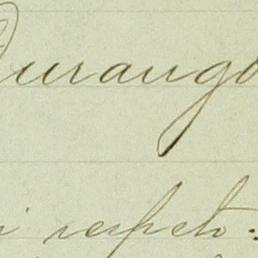 Durango
i respeto: